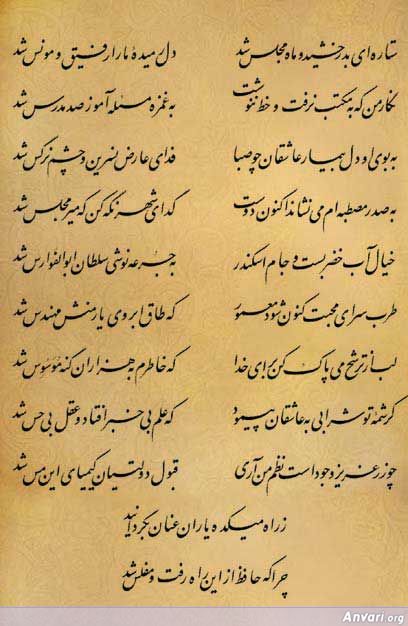 ستاره‌ای بدرخشید و ماه مجلس شد دل رمیدهٔ ما را رفیق و مونس شد
نگار من که به مکتب نرفت و خط ننوشت به غمزه مسئله آموز صد مدرس شد
به بوی او دل بیمار عاشقان چو صبا فدای عارض نسرین و چشم نرگس شد
به صدر مصطبه‌ام می‌نشاند اکنون دوست گدای شهر نگه کن که میر مجلس شد
خیال آب خضر بست و جام اسکندر به جرعه نوشی سلطان ابوالفوارس شد
طرب سرای محبت کنون شود معمور که طاق ابروی یار منش مهندس شد
لب از ترشح می پاک کن برای خدا که خاطرم به هزاران گنه موسوس شد
کرشمه تو شرابی به عاشقان پیمود که علم بی خبر افتاد و عقل بی حس شد
چو زر عزیز وجود است نظم من آری قبول دولتیان کیمیای این مس شد
ز راه میکده یاران عنان بگردانید
چرا که حافظ از این راه رفت و مفلس شد
Anvari.org